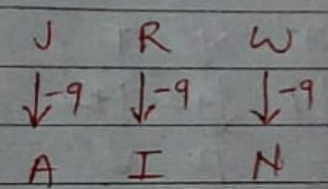 J R W
↓-9 ↓-9 ↓-9
A I N